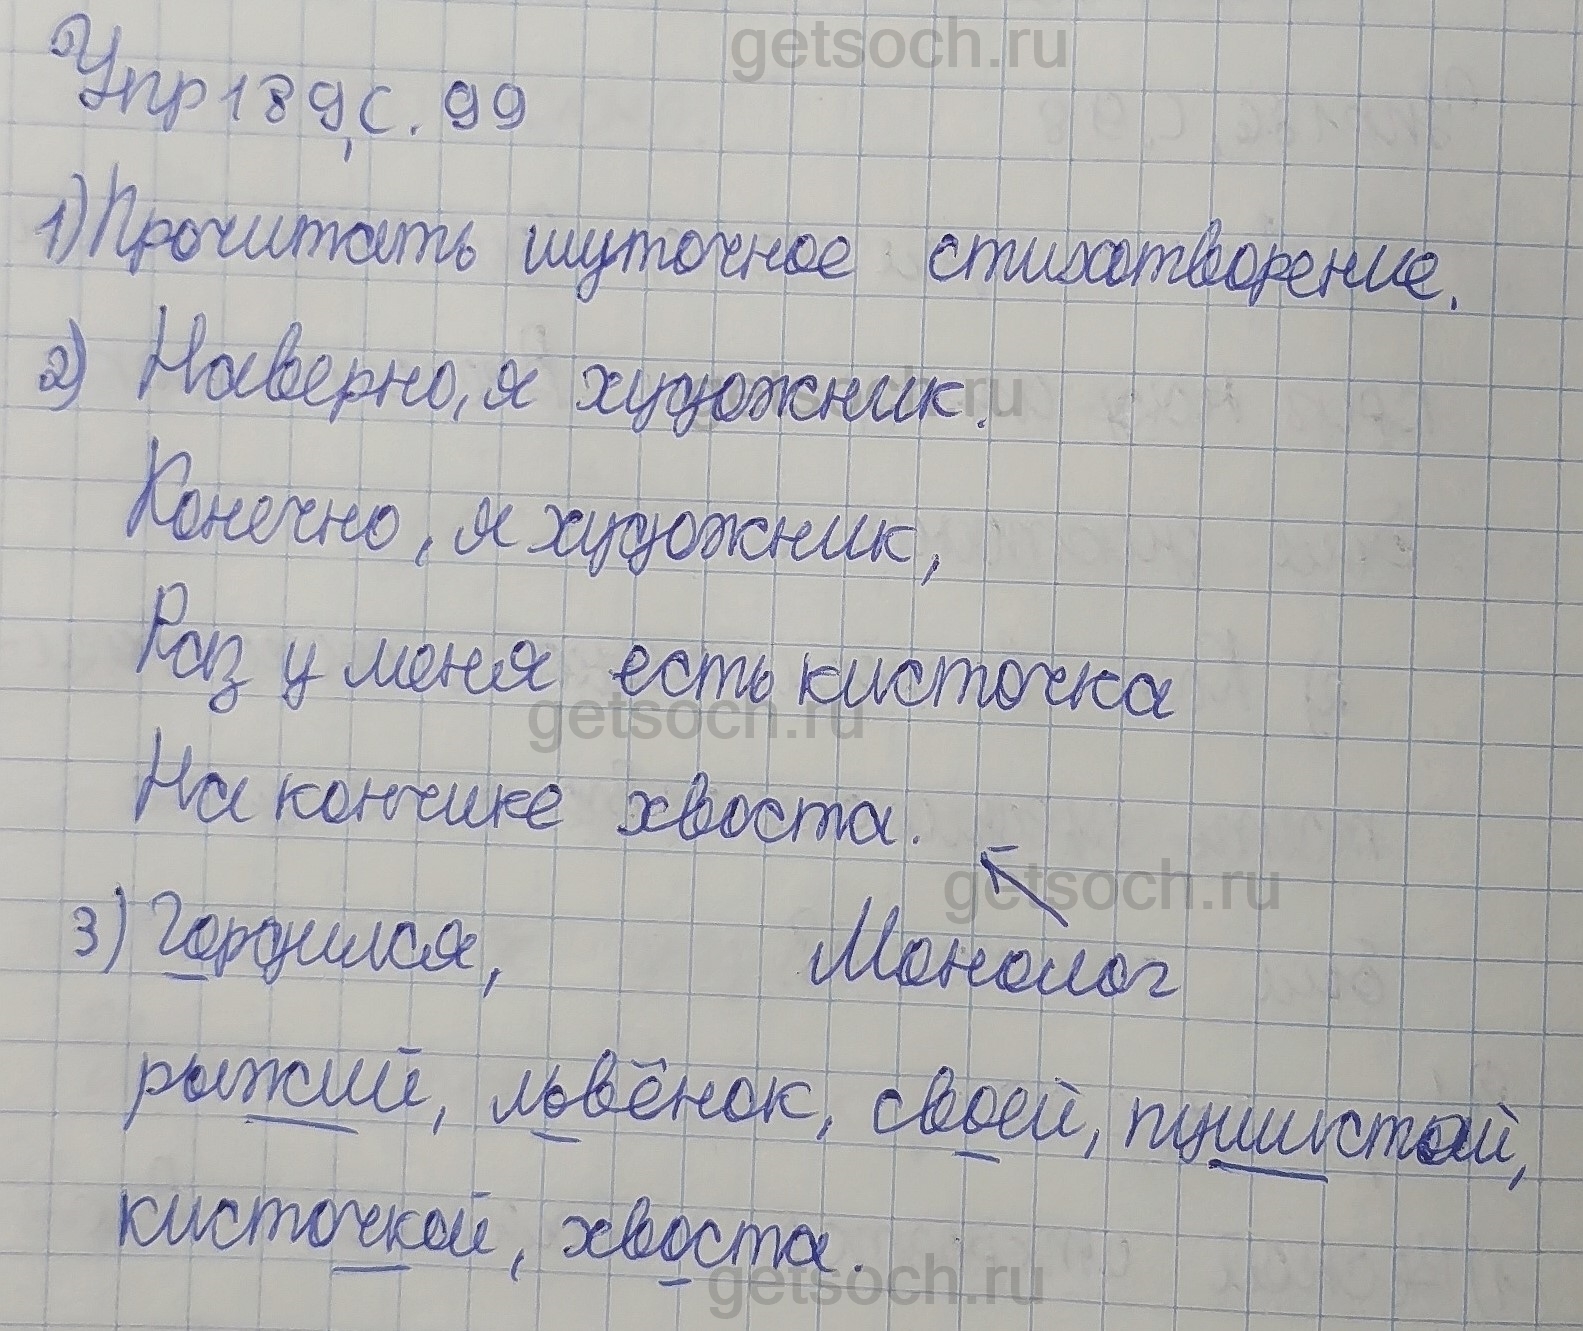 getsoch.ru
Упр 189, с. 99
1) Прочитать шуточное стихотворение.
2) Наверно, я художник.
getsoch.ru
Конечно, я художник,
Раз у меня есть кисточка
getsoch.ru
На кончике хвоста.
getsoch.ru
3) Гордился, Монолог
рыжий, львёнок, своей, пушистой,
кисточкой, хвоста.
getsoch.ru